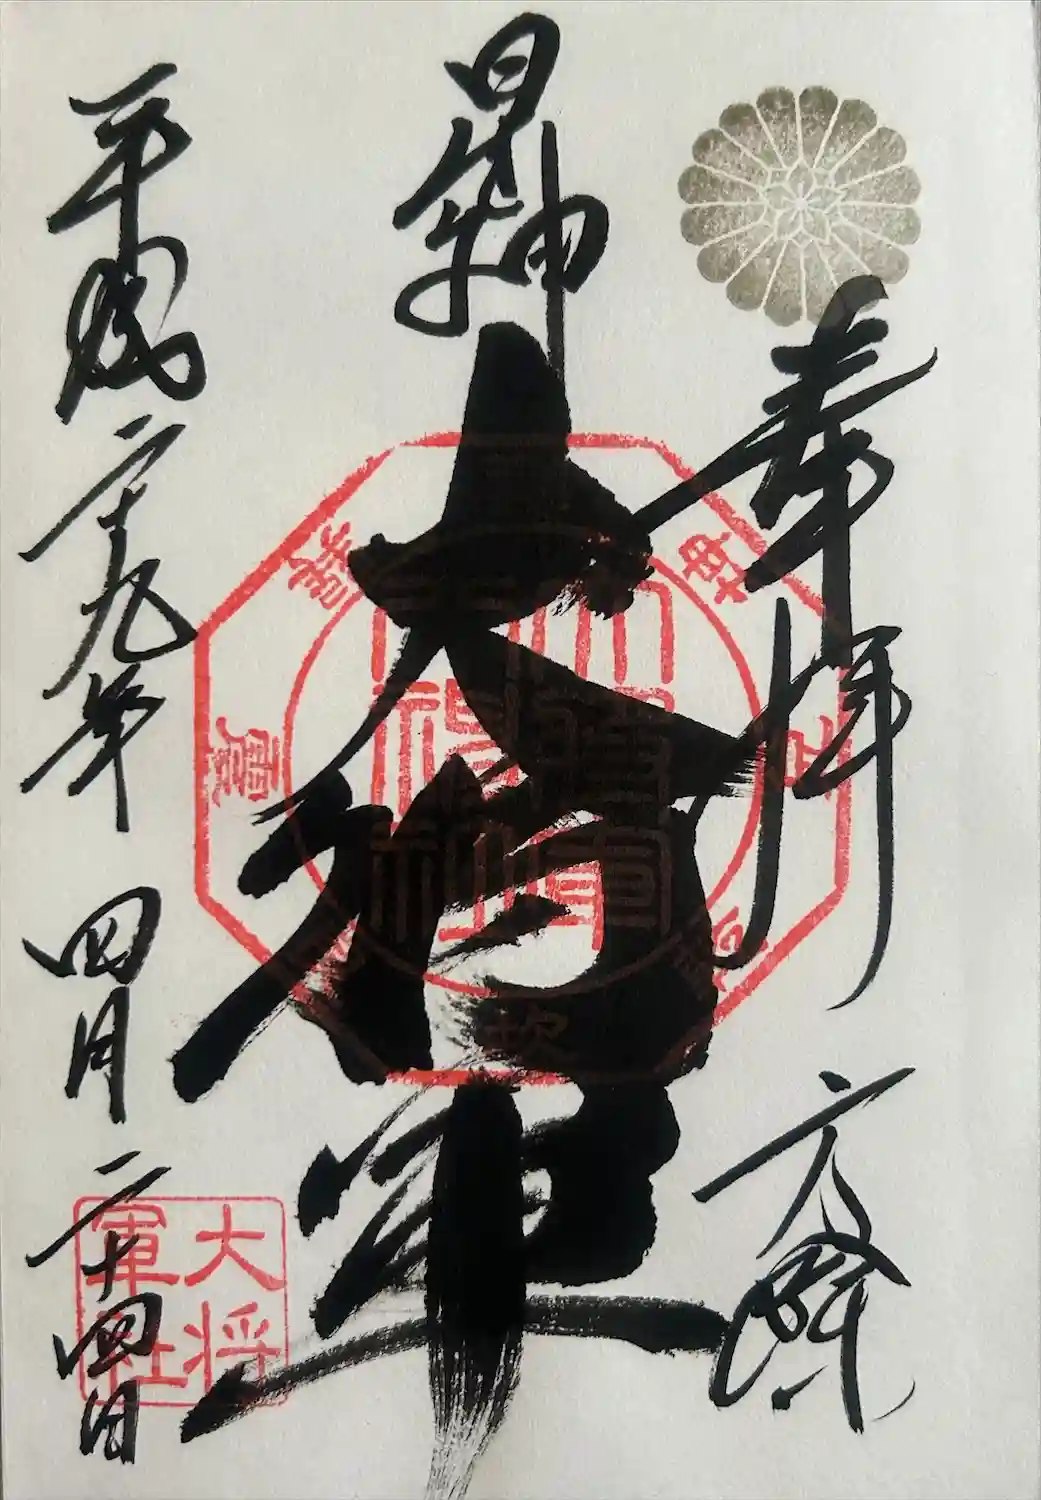 奉拝
方除
星神
大将軍
平成二十九年 四月 二十四日
大将
軍社